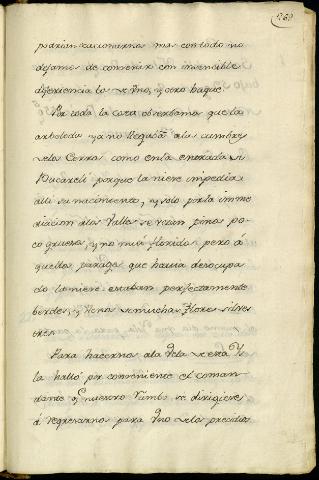 260
podrian racionarnos mas con todo no
dejamos de convenir con invencible
diferiencia los de Uno, y otro buque
Por toda la costa observamos que la
arboleda ya no llegaba á las cumbres
de los Cerros como en la entrada de
Bucareli porque la nieve impedia
alli su nacimiento, y solo por la imme
diacion á los Valles se veian pinos po
co gruesos, y no mui floridos pero á
quellos parages que havia desocupa
do la nieve estaban perfectamente
berdes, y llenos de muchas flores silves
tres
Para hacernos á la Vela de esta Ys
la halló por conveniente el coman
dante q nuestro rumbo se dirigiese
á regresarnos para Uno de los presidios